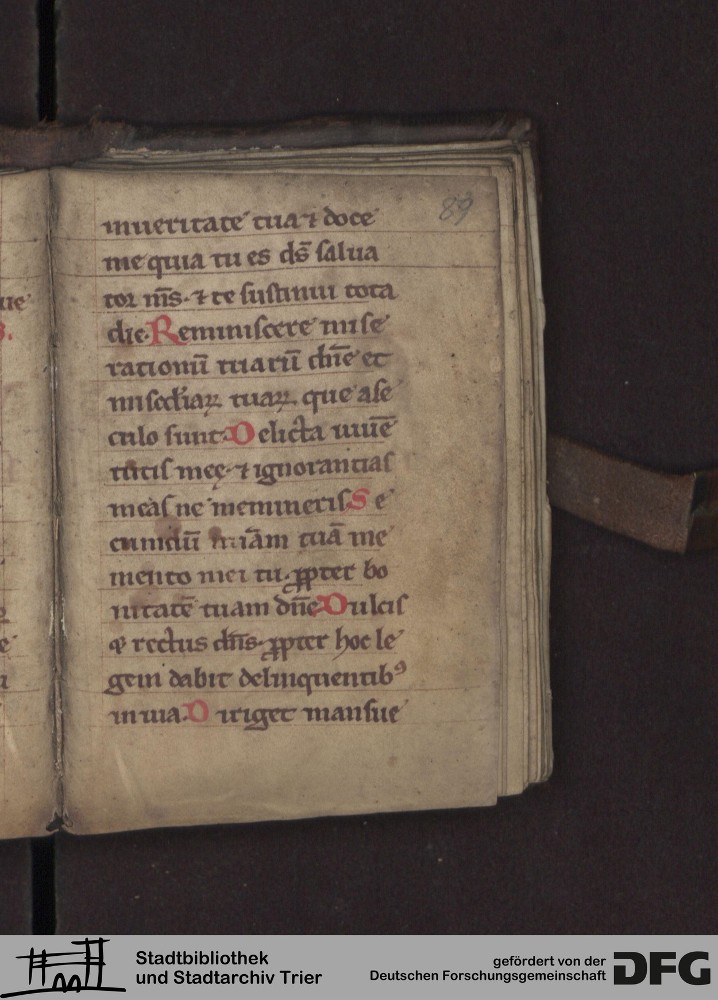 89
in ueritate tua ⁊ doce
me quia tu es ds̄ salua
tor m̄s. ⁊ te sustinui tota
die. Reminiscere mise
rationū tuarū dn̄e et
misediaꝝ tuaꝝ. que ase
culo sunt. Delicta iuuē
tutis meę. ⁊ ignorantias
meas ne memineris Se
cundū miām tuā me
mento mei tu. ꝓpter bo
nitatē tuam dn̄e. Dulcis
⁊ rectus dn̄s. ꝓpter hoc le
gem dabit delinquentibꝰ
in uia. Diriget mansue
ue
e
Stadtbibliothek
und Stadtarchiv Trier
gefördert von der
Deutschen Forschungsgemeinschaft
DFG